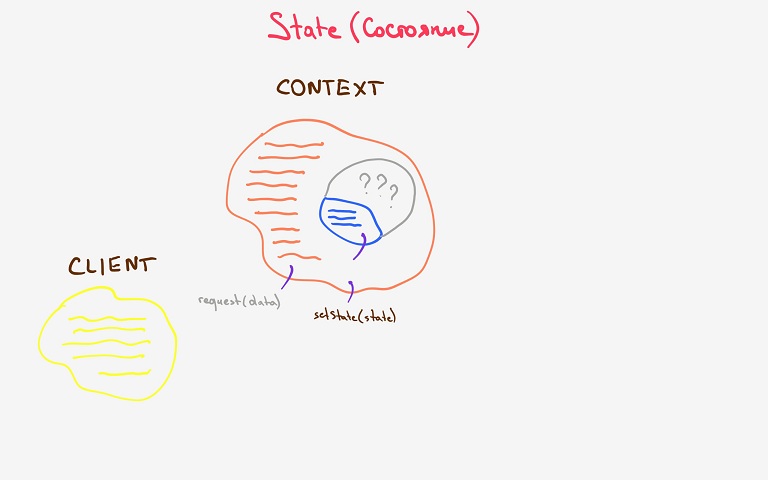 State (Состояние)
CONTEXT
???
CLIENT
request(data)
setState(state)